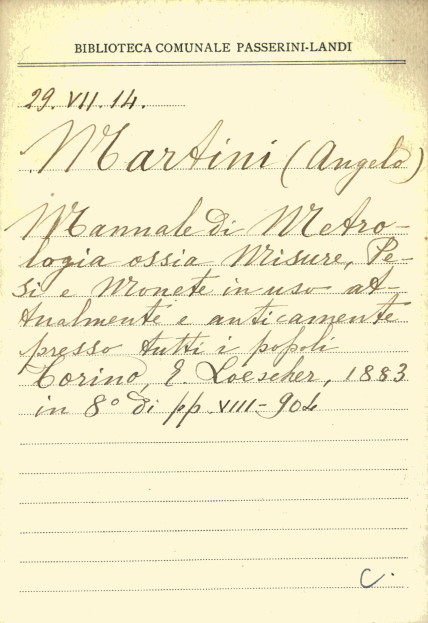 BIBLIOTECA COMUNALE PASSERINI-LANDI
29. VII. 14.
Martini (Angelo)
Manuale di Metro-
logia ossia Misure, Pe-
si e Monete in uso at-
tualmente e anticamente
presso tutti i popoli
Torino, E. Loescher, 1883
in 8° di pp. VIII-904
C.